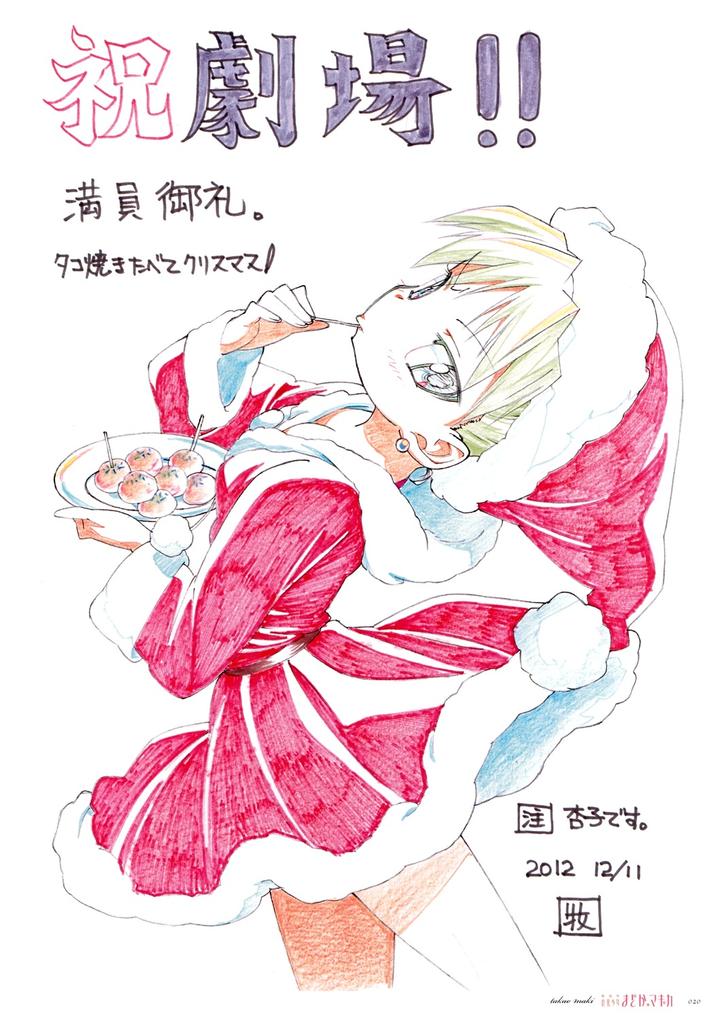 祝劇場!!
満員御礼。
タコ焼きたべてクリスマス!
注 杏子です。
2012 12/11
牧
takao maki 魔法少女まどか☆マギカ 020